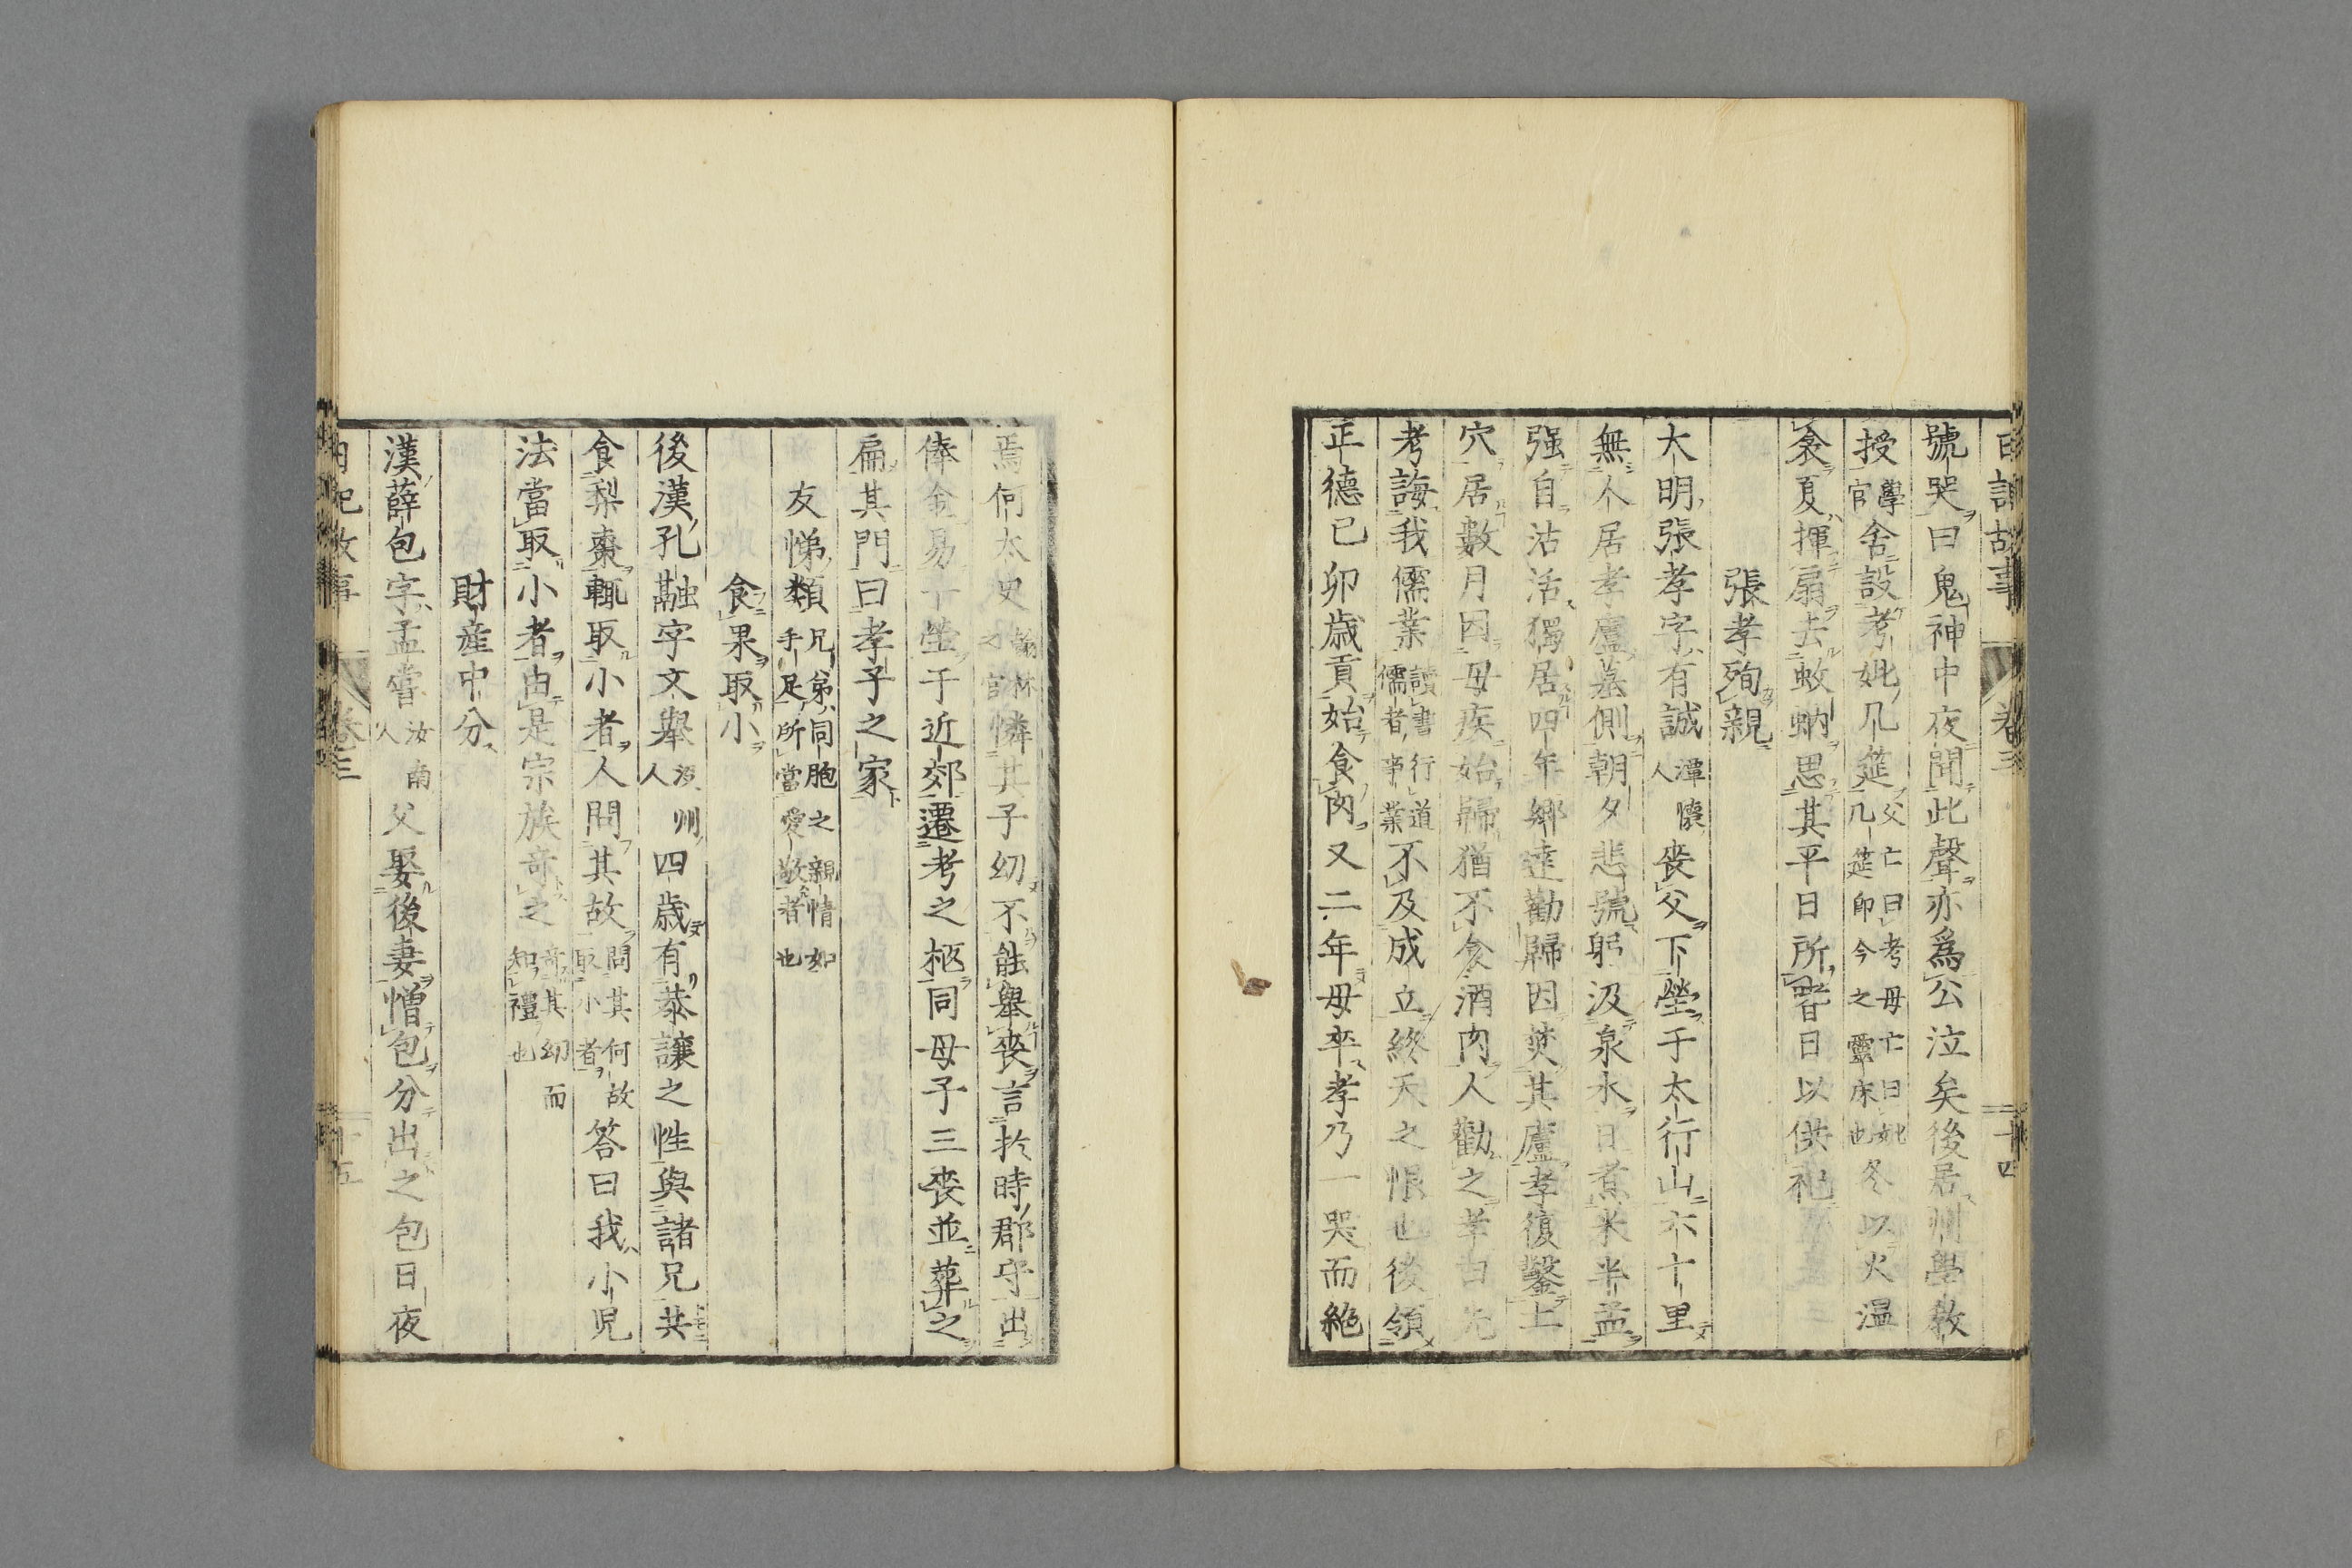 日記故事 卷三 十四
號哭曰鬼神中夜聞此聲亦爲公泣矣後居州學教
授學官舍設考妣几筵父亡曰考母亡曰妣几筵即今之靈床也冬以火温
衾夏揮扇去蚊蚋思其平日所嗜日以供祀
張孝殉親
大明張孝字有誠潭懷人喪父下塋于太行山不十里
無人居孝廬墓側朝夕悲號躬汲泉水日煮米半盂
强自沽活獨居四年鄉達勸歸因焚其廬孝復鑿土
穴居數月因母疾始歸猶不食酒肉人勸之孝曰先
考誨我儒業讀書行道儒者事業不及成立終天之恨也後領
正德已卯歲貢始食肉又二年母卒孝乃一哭而絶
焉何太史翰林之官憐其子幼不能舉喪言於時郡守出
俸金易于塋于近郊遷考之柩同母子三喪並葬之
扁其門曰孝子之家
友悌類兄弟同胞之親情如手足所當愛敬者也
食果取小
後漢孔融字文舉兗州人四歲有恭讓之性與諸兄共
食梨棗輒取小者人問其故問其何故取小者答曰我小児
法當取小者由是宗族奇之奇其幼而知禮也
財産中分
漢薛包字孟嘗汝南人父娶後妻憎包分出之包日夜
日記故事 卷三 十五